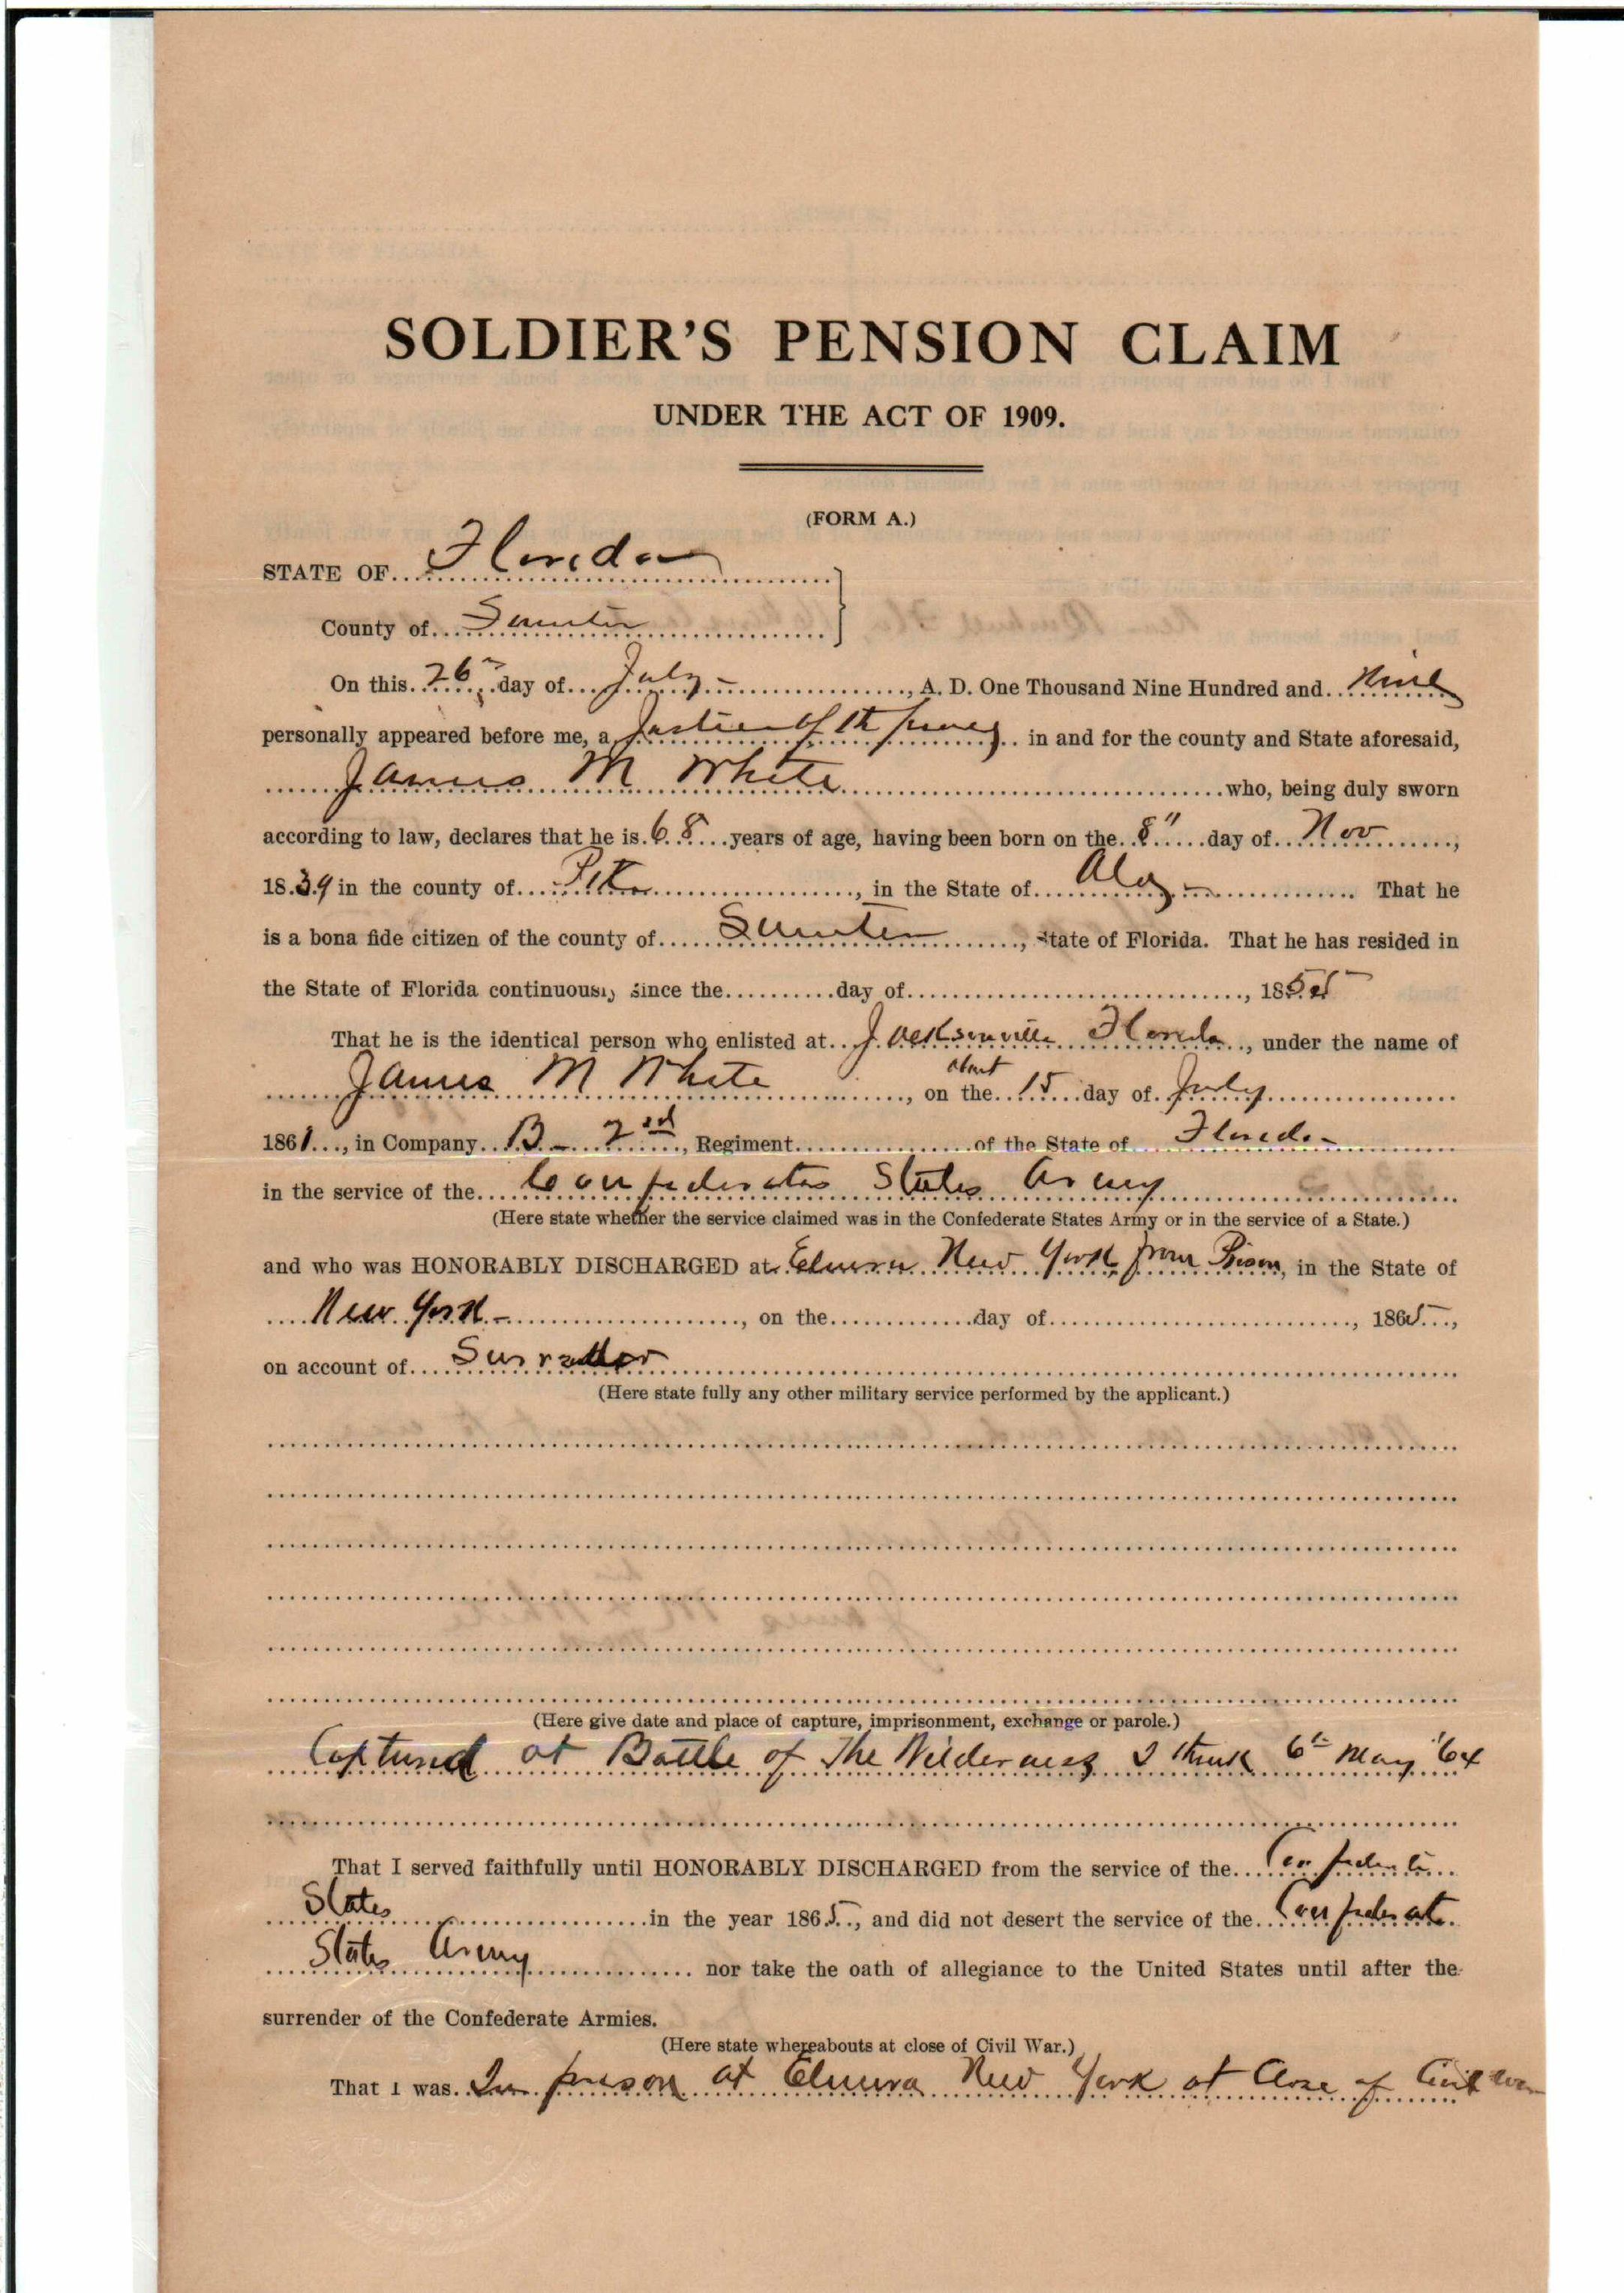 SOLDIER'S PENSION CLAIM
UNDER THE ACT OF 1909.
(FORM A.)
STATE OF Florida
County of Sumter
On this 26th day of July, A. D. One Thousand Nine Hundred and Nine
personally appeared before me, a Justice of th peace in and for the county and State aforesaid,
James M White who, being duly sworn
according to law, declares that he is 68 years of age, having been born on the 8" day of Nov,
1839 in the county of Pike, in the State of Ala. That he
is a bona fide citizen of the county of Sumter, State of Florida. That he has resided in
the State of Florida continuously since the day of, 1855
That he is the identical person who enlisted at Jacksonville Florida, under the name of
James M White, on the about 15 day of July
1861, in Company B 2nd, Regiment of the State of Florida
in the service of the Confederates States Army
(Here state whether the service claimed was in the Confederate States Army or in the service of a State.)
and who was HONORABLY DISCHARGED at Elmira New York from Prison, in the State of
New York, on the day of, 1865,
on account of
(Here state fully any other military service performed by the applicant.)
(Here give date and place of capture, imprisonment, exchange or parole.)
Captured at Battle of The Wilderness I think 6th May '64
That I served faithfully until HONORABLY DISCHARGED from the service of the Confederate
States in the year 1865, and did not desert the service of the Confederate
States Army nor take the oath of allegiance to the United States until after the
surrender of the Confederate Armies.
(Here state whereabouts at close of Civil War.)
That I was In prison at Elmira New York at Close of Civil War